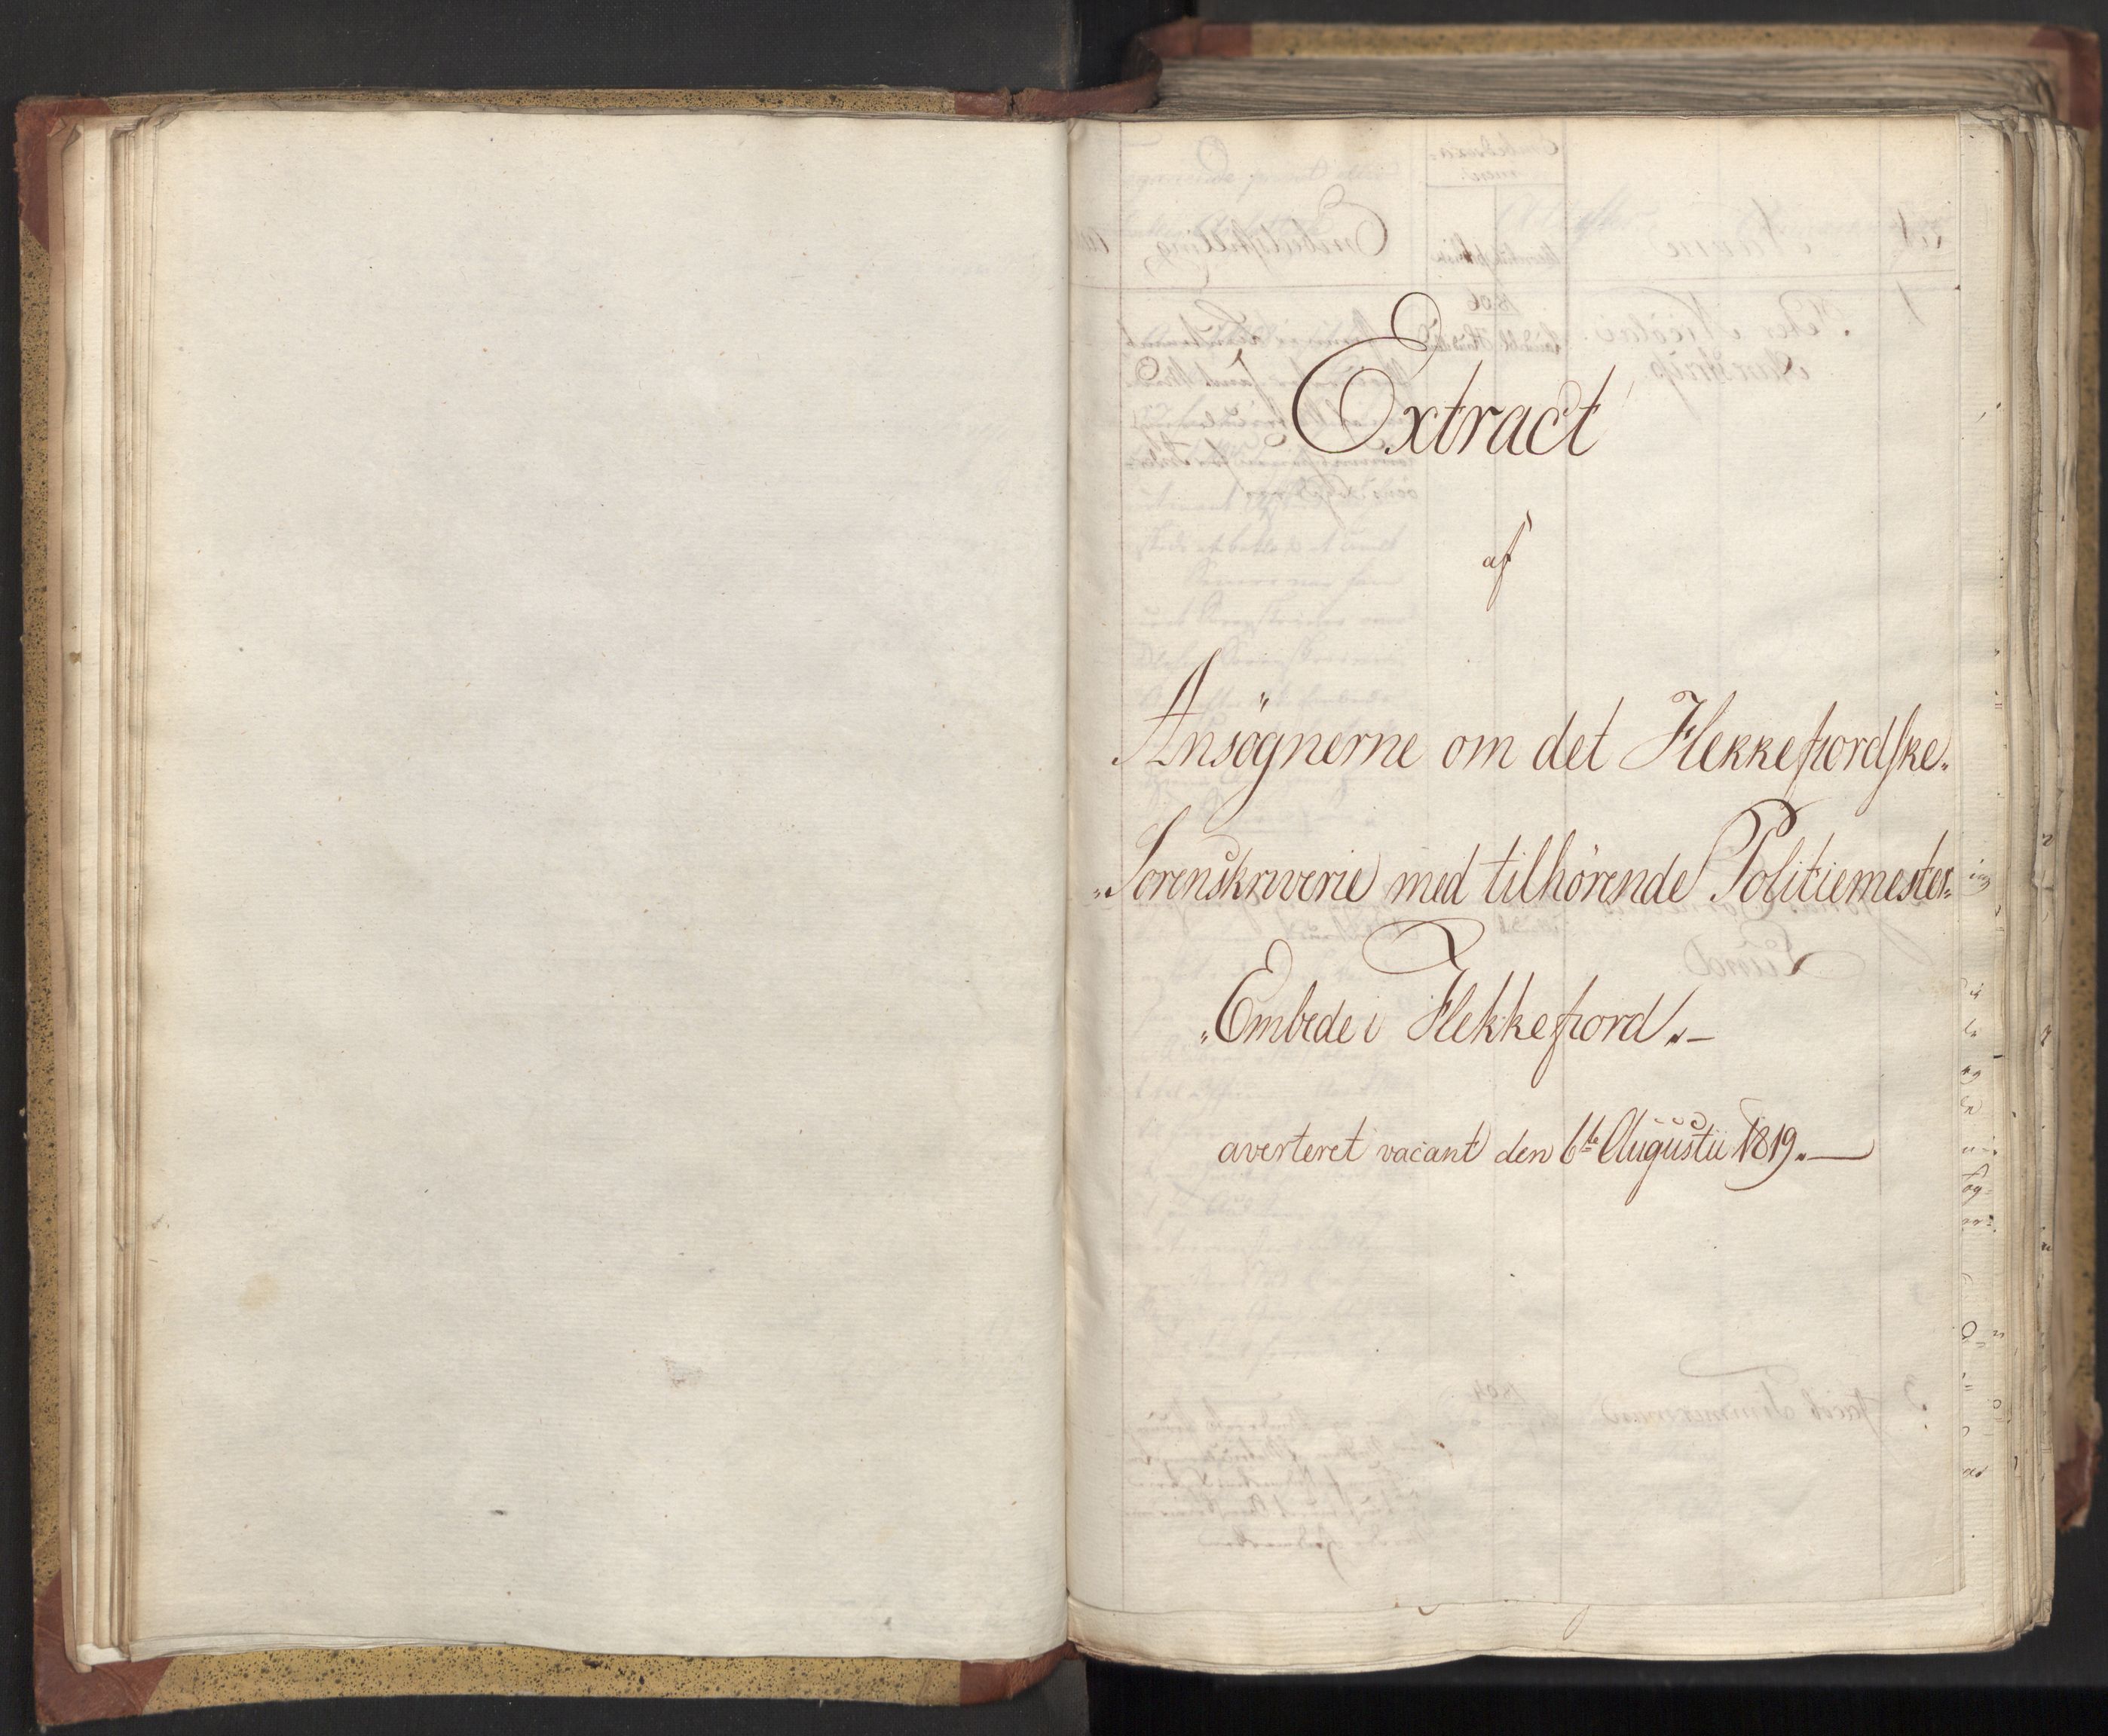 Extract
af
Ansögnerne om det Flekkefiordske
Sorenskriverie med tilhörende Politiemester
Embede i Flekkefiord.
averteret vacant den 6te Augustii 1819.